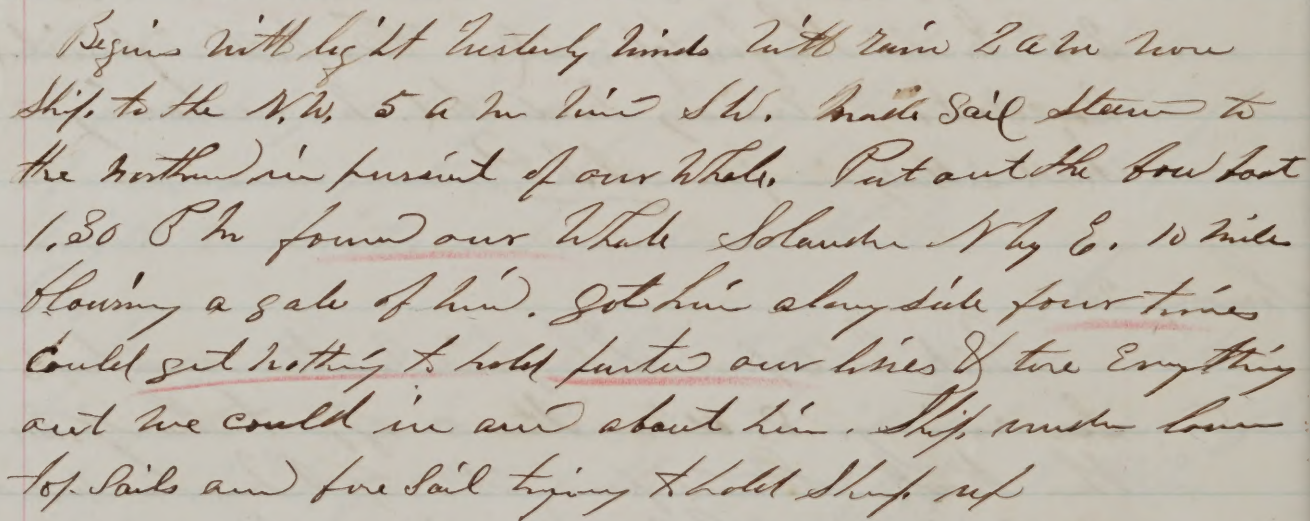 Begins with light Westerly winds with rain 2 a m wore
Ship. to the N.W. 5 a m wind S W. Made Sail Steered to
the Northard in pursuit of our Whale. Put out the bow boat
1.30 P M found our Whale Solander N by E. 10 miles
blowing a gale of wind. got him along side four times
Could get nothing to hold parted our lines & tore Everything
out we could in and about him. Ship. under lower
top. Sails and fore Sail trying to hold Ship. up